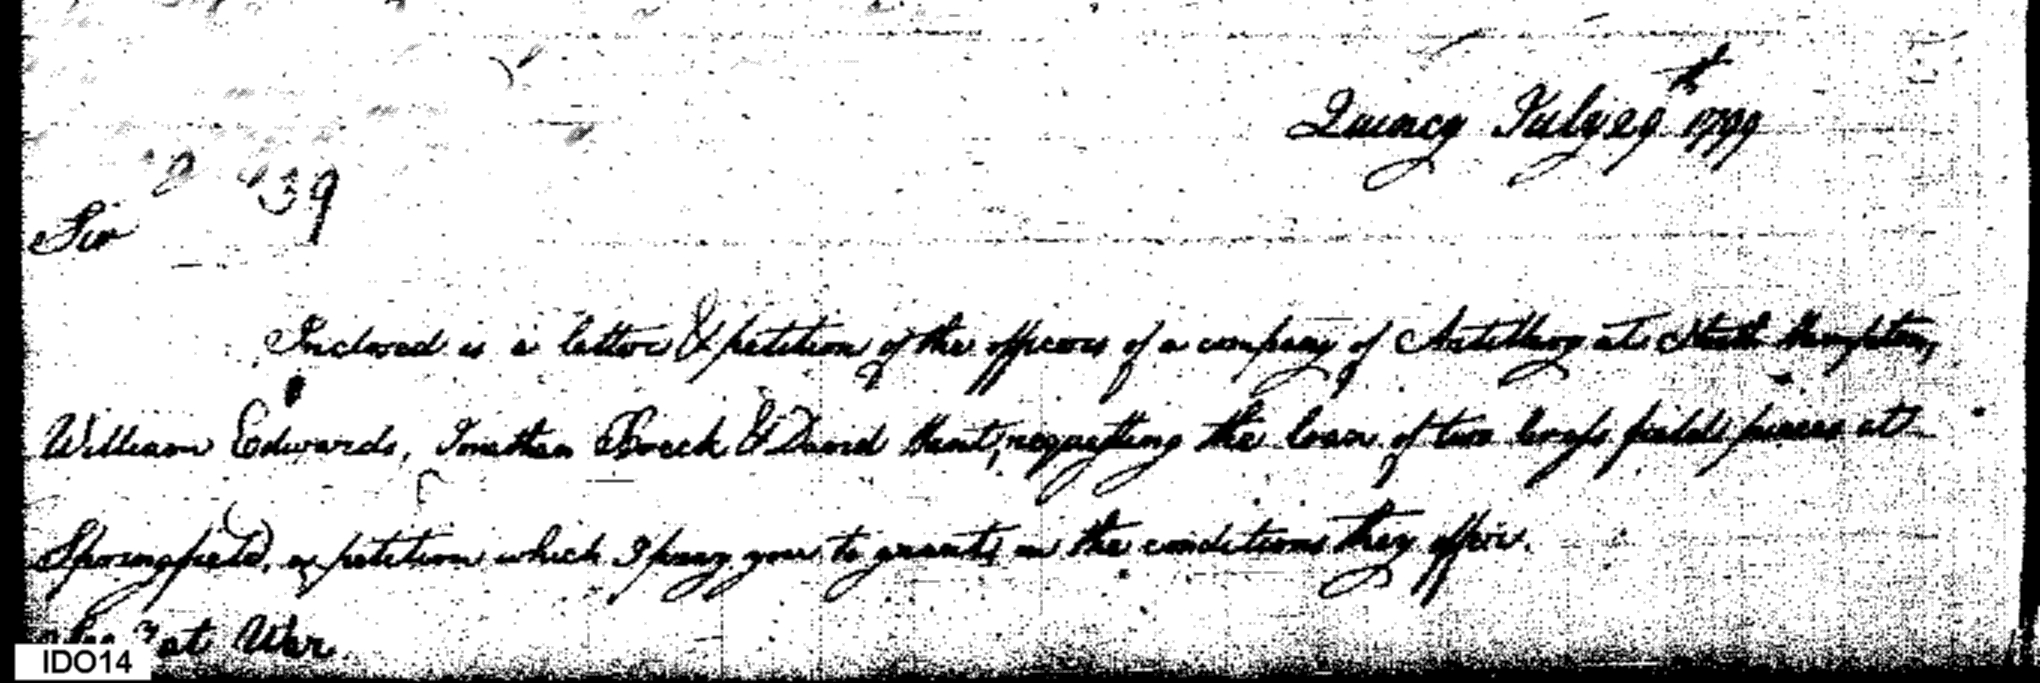 Quincy July 29th 1799
39
Sir
Inclosed is a letter & petition of the officers of a company of Artillery at North hampton,
William Edwards, Jonathan Breck & David Hunt, requesting the loan of two brass field pieces at
Springfield, a petition which I pray you to grant, on the conditions they offer.
at War
IDO14